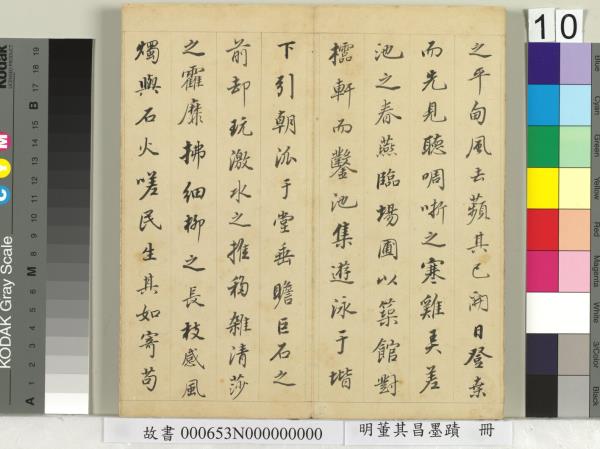 之平甸風去蘋其已開日登桒
而先見聽啁哳之寒雞弄差
池之春燕臨場圃以築館對
櫺軒而鑿池集遊泳于堦
下引朝派于堂垂瞻巨石之
前却玩激水之推移雜清莎
之霍靡拂細柳之長枝感風
燭與石火嗟民生其如寄苟
故書 000653N000000000
明董其昌墨蹟 冊
10
KODAK Gray Scale
Kodak
C Y M
A 1 2 3 4 5 6 M 8 9 10 11 12 13 14 15 B 17 18 19
Blue
Cyan
Green
Yellow
Red
Magenta
White
3/Color
Black